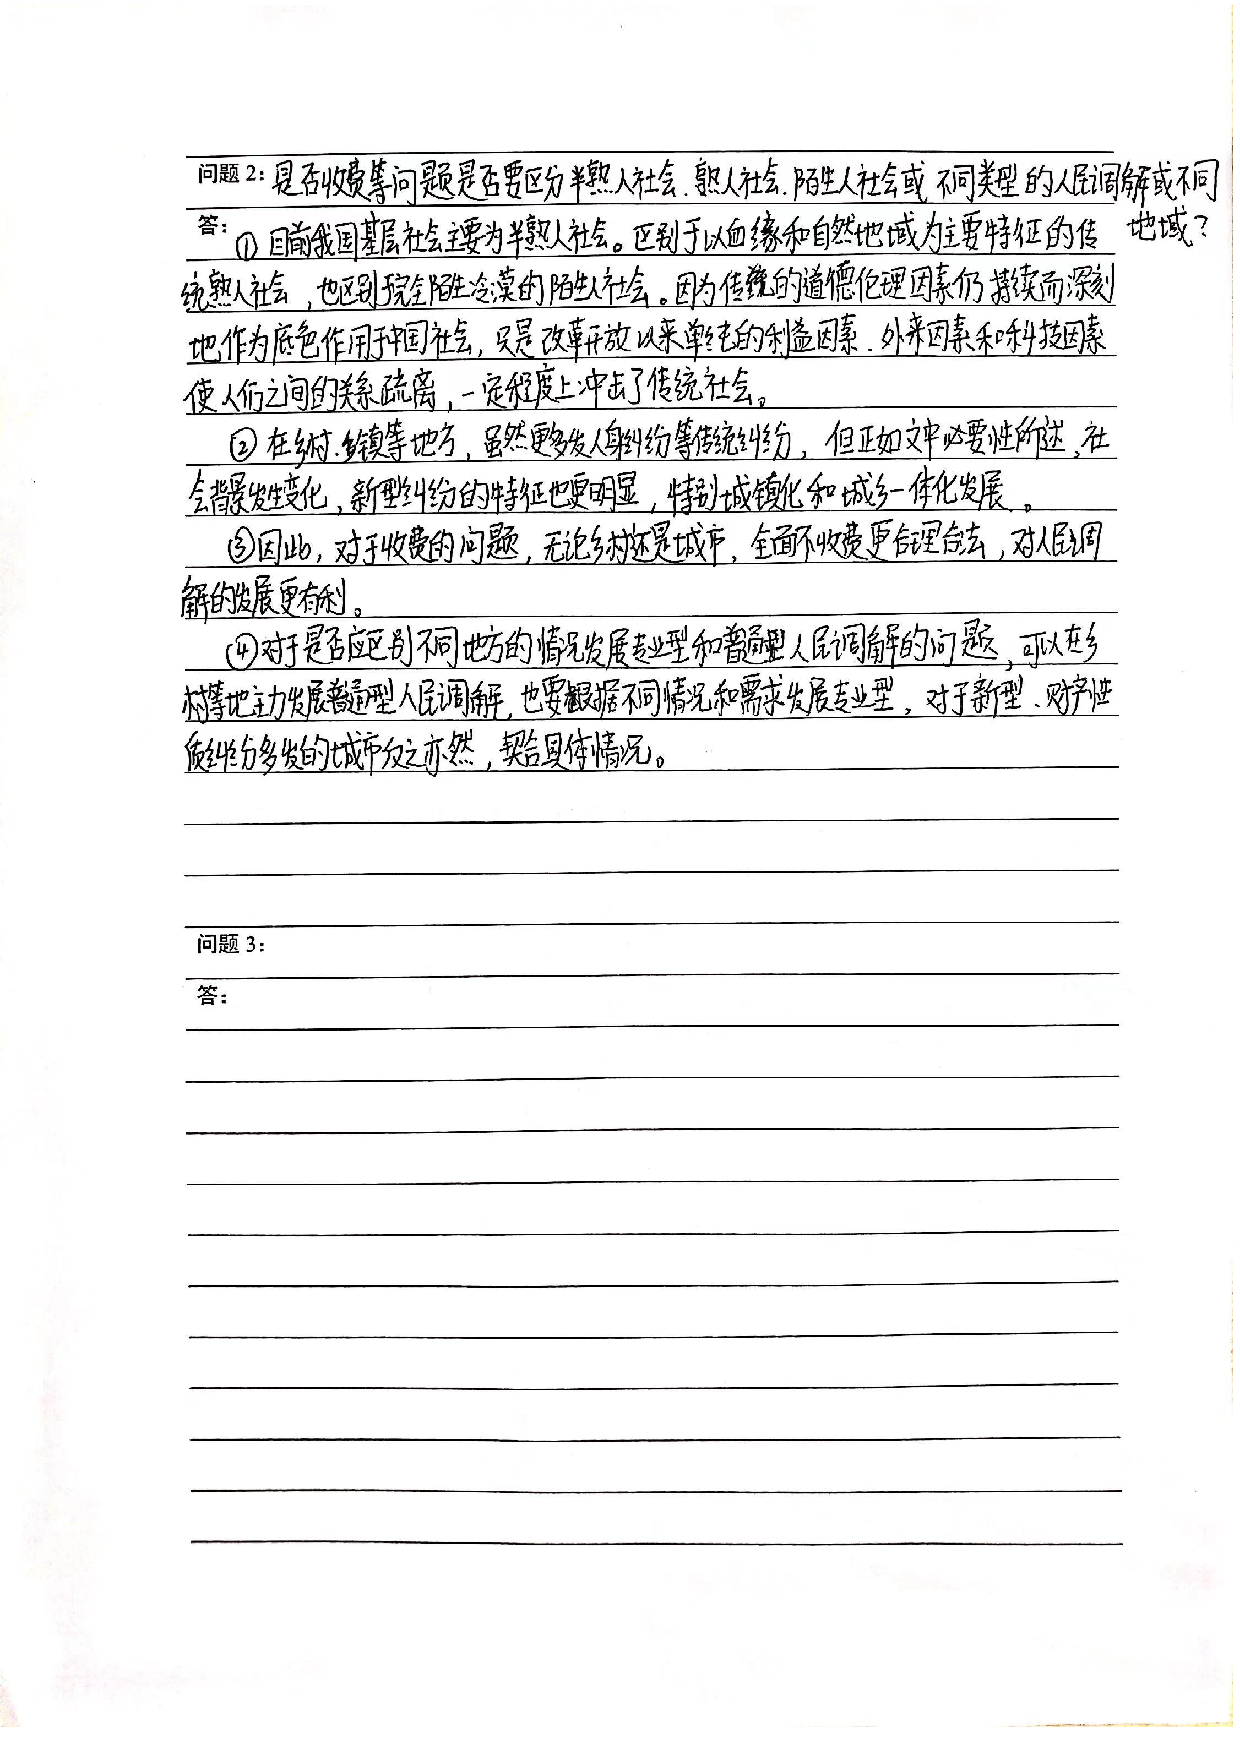 问题 2: 是否收费等问题是否要区分半熟人社会、熟人社会、陌生人社会或不同类型的人民调解或不同
地域?
答: ①目前我国基层社会主要为半熟人社会。区别于以血缘和自然地域为主要特征的传
统熟人社会，也区别于完全陌生冷漠的陌生人社会。因为传统的道德伦理因素仍持续而深刻
地作为底色作用于中国社会，只是改革开放以来单纯的利益因素、外来因素和科技因素
使人们之间的关系疏离，一定程度上冲击了传统社会。
②在乡村、乡镇等地方，虽然更多发人身纠纷等传统纠纷，但正如文中必要性所述，社
会背景发生变化，新型纠纷的特征也更明显，特别城镇化和城乡一体化发展。
③因此，对于收费的问题，无论乡村还是城市，全面不收费更合理合法，对人民调
解的发展更有利。
④对于是否应区别不同地方的情况发展专业型和普通型人民调解的问题，可以在乡
村等地主力发展普通型人民调解，也要根据不同情况和需求发展专业型，对于新型、财产性
质纠纷多发的城市反之亦然，契合具体情况。
问题 3:
答: